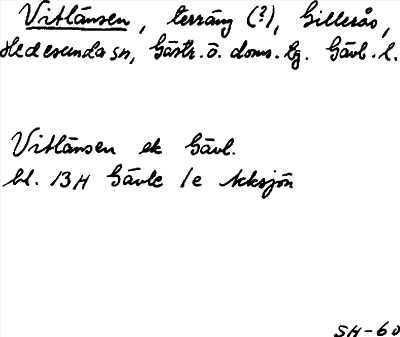 Vitlänsen, terräng (?), Gilleråo,
Hedesunda sn, Gästr. ö. doms. tg. Gävl. l.
Vitlänsen ek Gävl.
bl. 13H Gävle 1e Akksjön
SH-60